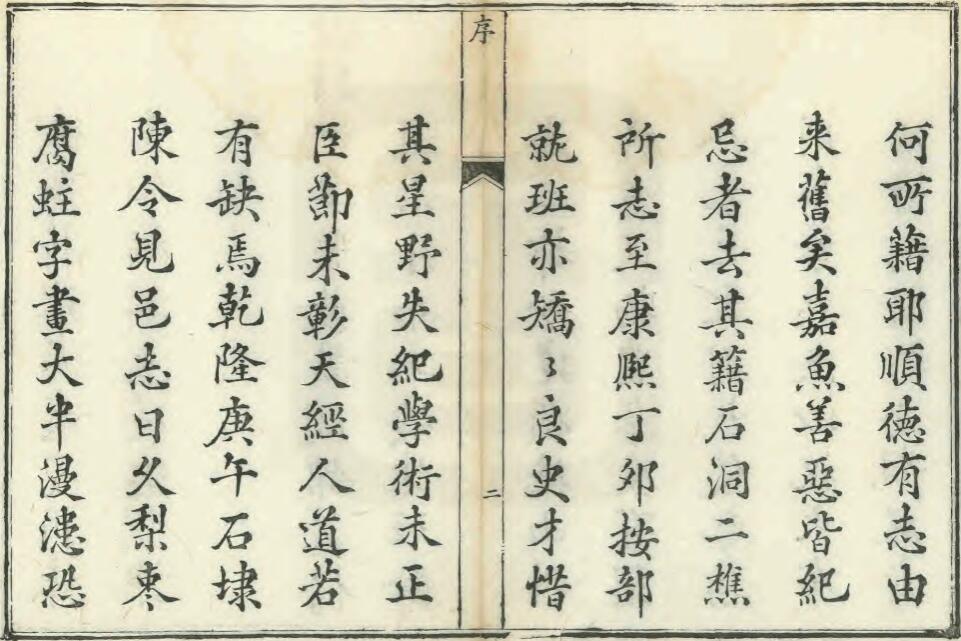 何所籍耶順徳有志由
来舊矣嘉魚善惡皆紀
忌者去其籍石洞二樵
所志至康熙丁夘按部
就班亦矯〻良史才惜
序
二
其星野失紀學術未正
臣節未彰天經人道若
有缺焉乾隆庚午石埭
陳令見邑志日久梨枣
腐蛀字畫大半漫漶恐